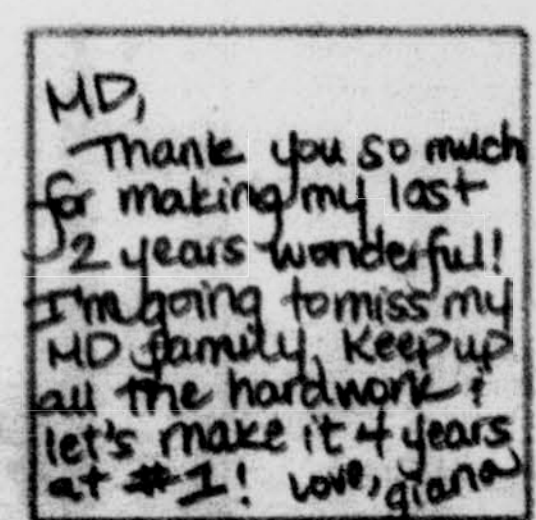 MD,
Thank you so much
for making my last
2 years wonderful!
I'm going to miss my
MD family. Keep up
all the hardwork &
let's make it 4 years
at #1! Love, giana